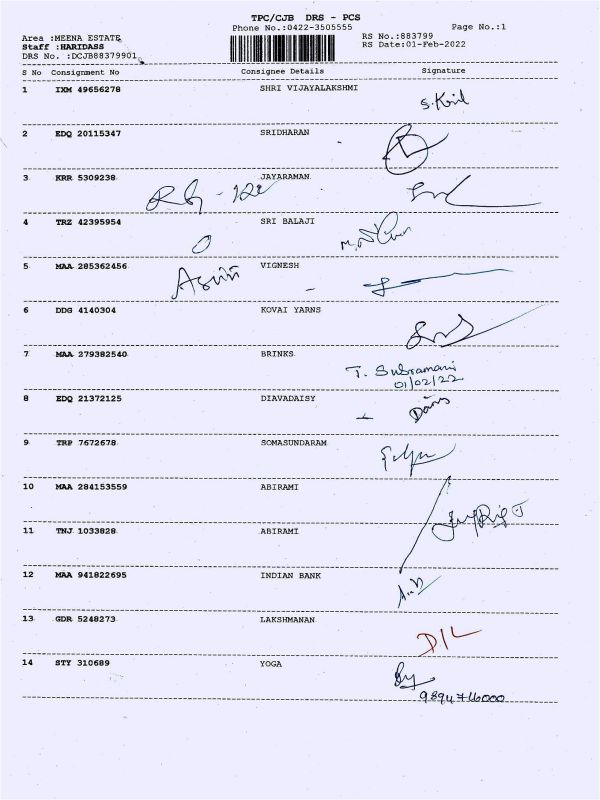 TPC/CJB DRS - PCS
Phone No.:0422-3505555 Page No.:1
Area :MEENA ESTATE RS No.:883799
Staff :HARIDASS RS Date:01-Feb-2022
DRS No. :DCJB88379901
S No Consignment No Consignee Details Signature
1 IXM 49656278 SHRI VIJAYALAKSHMI
2 EDQ 20115347 SRIDHARAN
3 KRR 5309238 JAYARAMAN
4 TRZ 42395954 SRI BALAJI
5 MAA 285362456 VIGNESH
6 DDG 4140304 KOVAI YARNS
7 MAA 279382540 BRINKS
T. Subramani
01/02/22
8 EDQ 21372125 DIAVADAISY
9 TRP 7672678 SOMASUNDARAM
10 MAA 284153559 ABIRAMI
11 TNJ 1033828 ABIRAMI
12 MAA 941822695 INDIAN BANK
13 GDR 5248273 LAKSHMANAN
D/L
14 STY 310689 YOGA